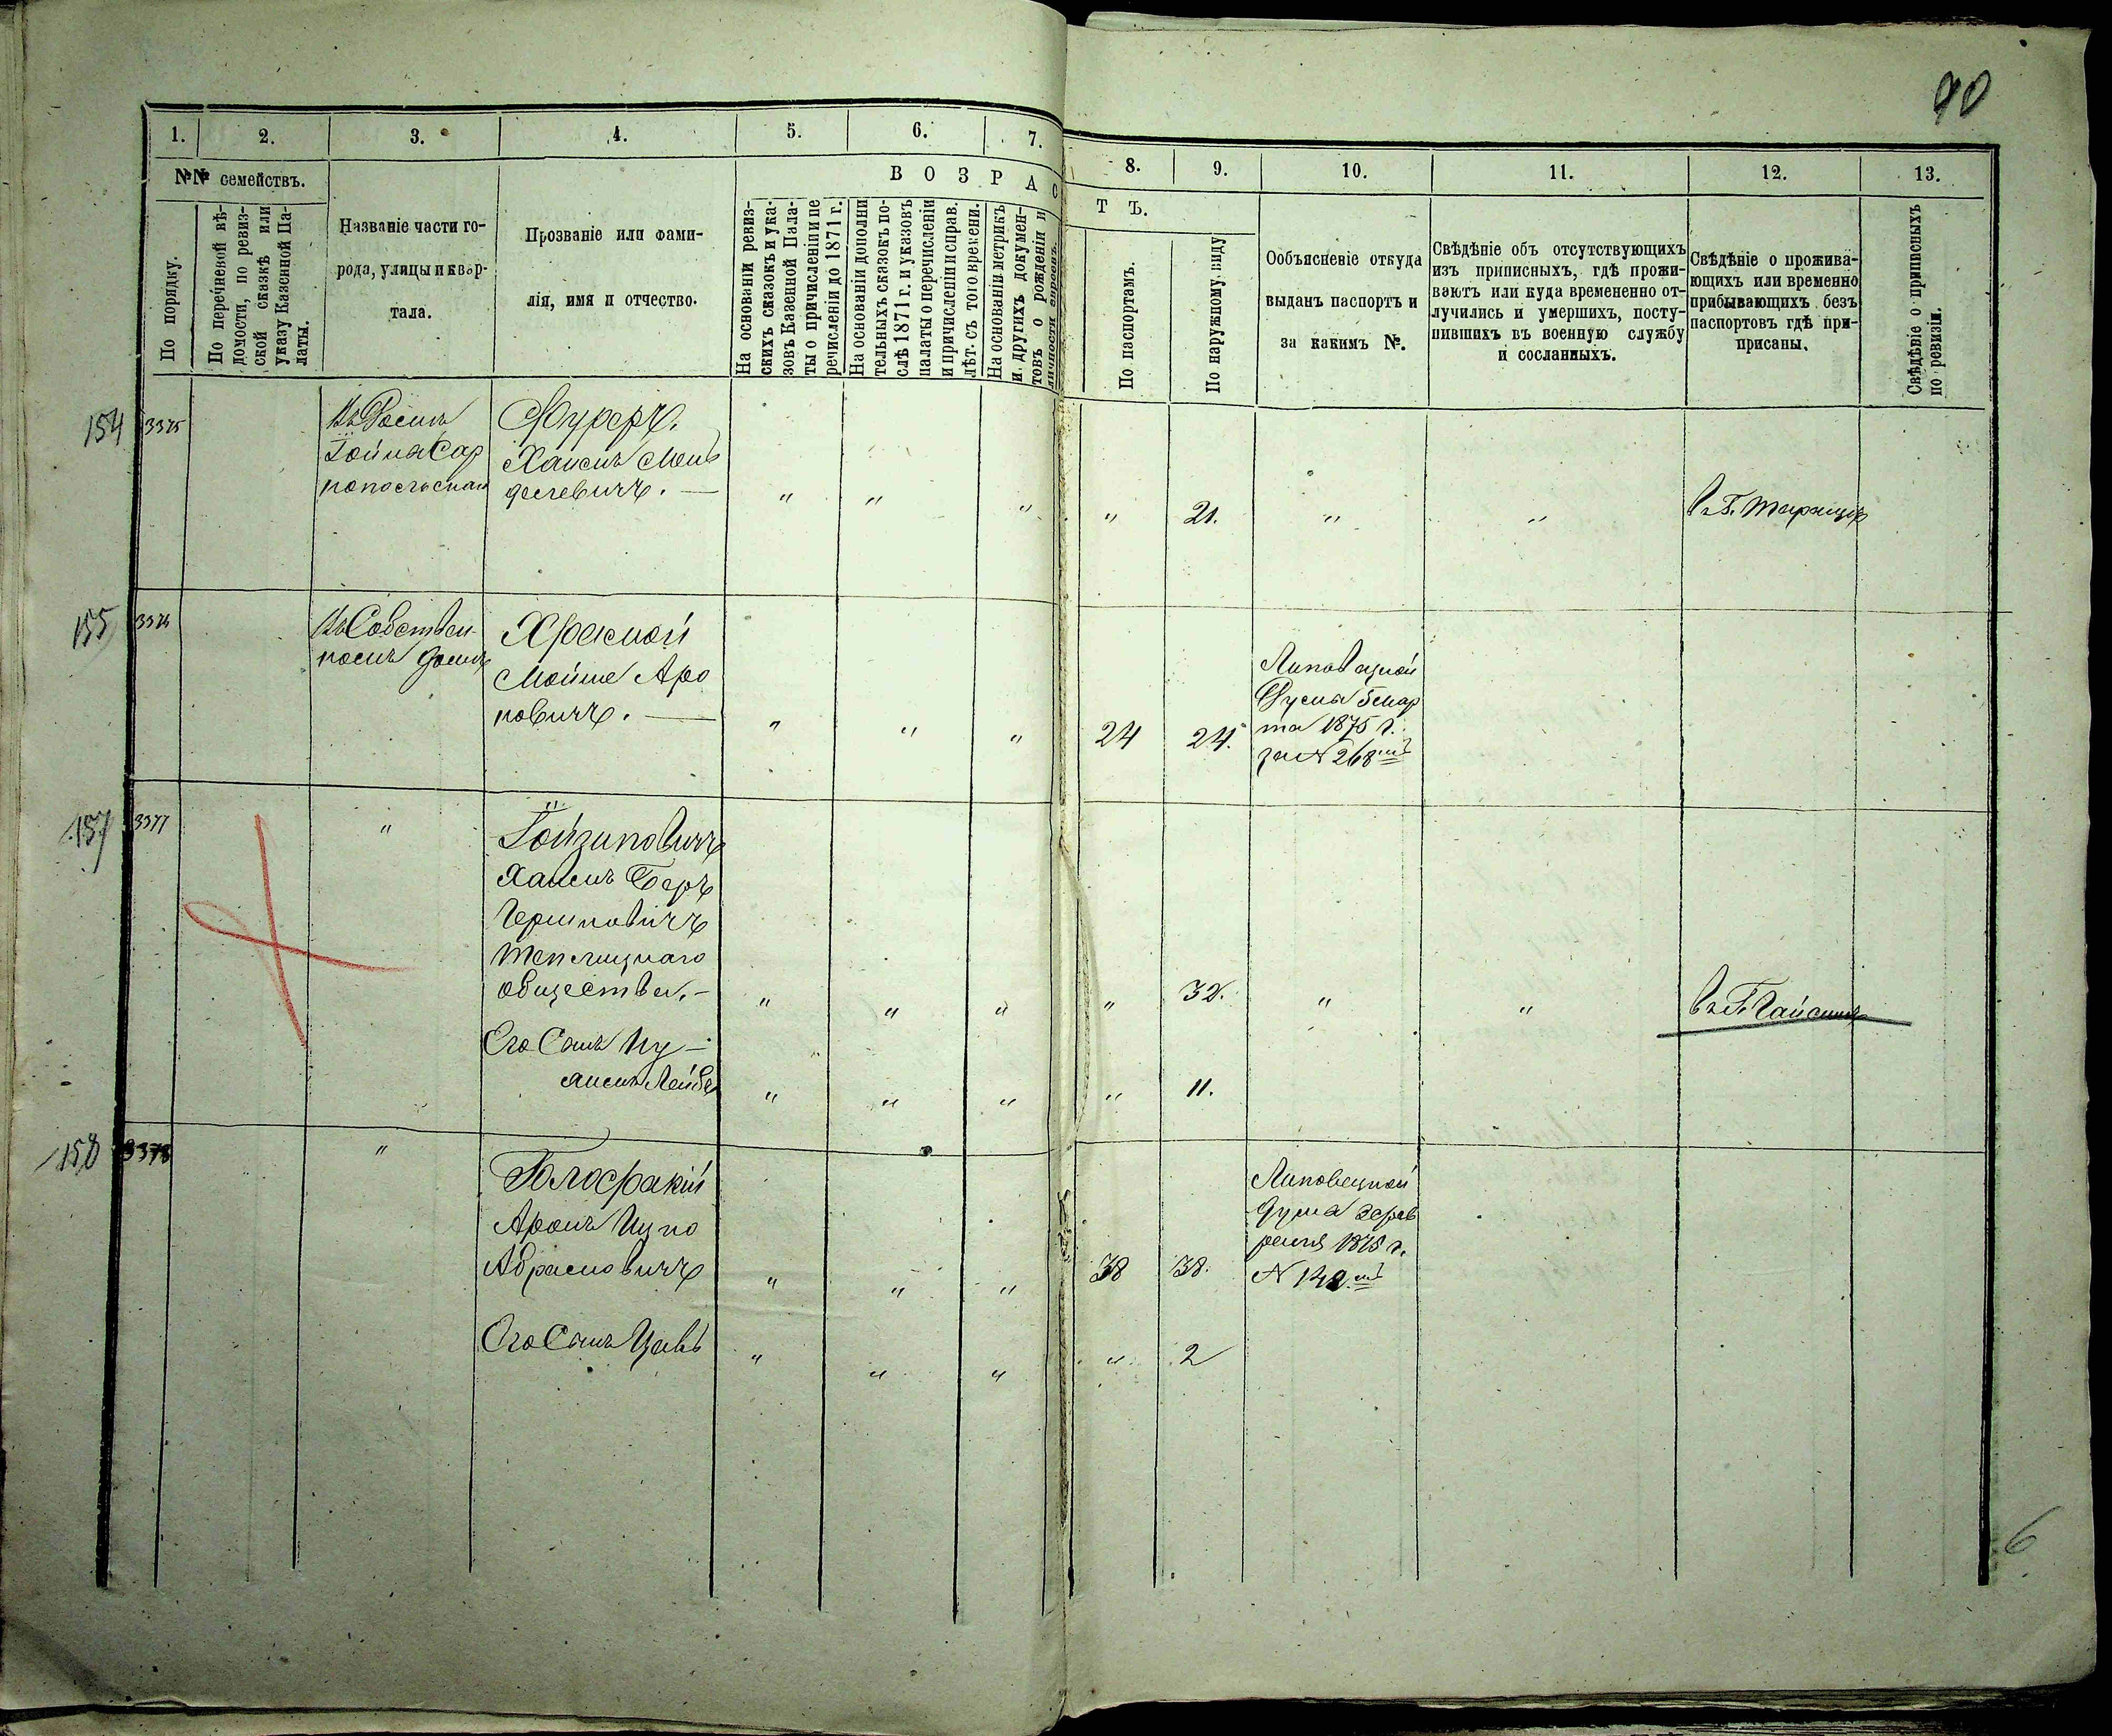 90
1. 2. 3. 4. 5. 6. 7. 8. 9. 10. 11. 12. 13.
№№ семействъ.
По порядку.
По перечневой вѣ-
домости, по ревиз-
ской сказкѣ или
указу Казенной Па-
латы.
Названіе части го-
рода, улицы и квар-
тала.
Прозваніе или фами-
лія, имя и отчество.
ВОЗРАСТЪ.
На основаніи ревиз-
скихъ сказокъ и ука-
зовъ Казенной Пала-
ты о причисленіи и пе
речисленіи до 1871 г.
На основаніи дополни
тельныхъ сказокъ по-
слѣ 1871 г. и указовъ
палаты о перечисленіи
и причисленіи и справ.
лѣт. съ того времени.
На основаніи метрикъ
и другихъ докумен-
товъ о рожденіи и
личности евреевъ.
По паспортамъ.
По наружному виду
Ообъясненіе откуда
выданъ паспортъ и
за какимъ №.
Свѣдѣніе объ отсутствующихъ
изъ приписныхъ, гдѣ прожи-
ваютъ или куда времененно от-
лучились и умершихъ, посту-
пившихъ въ военную службу
и сосланныхъ.
Свѣдѣніе о прожива-
ющихъ или временно
прибывающихъ безъ
паспортовъ гдѣ при-
писаны.
Свѣдѣніе о приписныхъ
по ревизіи.
154 3375
Хаимъ Мен
делевичъ. —
" " " " 21. " "
155 3376
Въ Собствен-
номъ домѣ
Храсмой
Мойше Аро
новичъ. —
" " " 24 24.
Липовецкой
Думы 5 мар
та 1875 г.
за № 268мъ
157 3377 "
Гойзиновичъ
Хаимъ Беръ
Гершковичъ
Теплицкаго
общества. —
" " " " 32. " " въ Г. Гайсинѣ
Его Сынъ
Лейба
" " " " 11.
158 3378 "
Аронъ Ицко
Абрамовичъ
" " " 38 38.
Липовецкой
Думы
1875 г.
Его Сынъ
" " " " 2
6